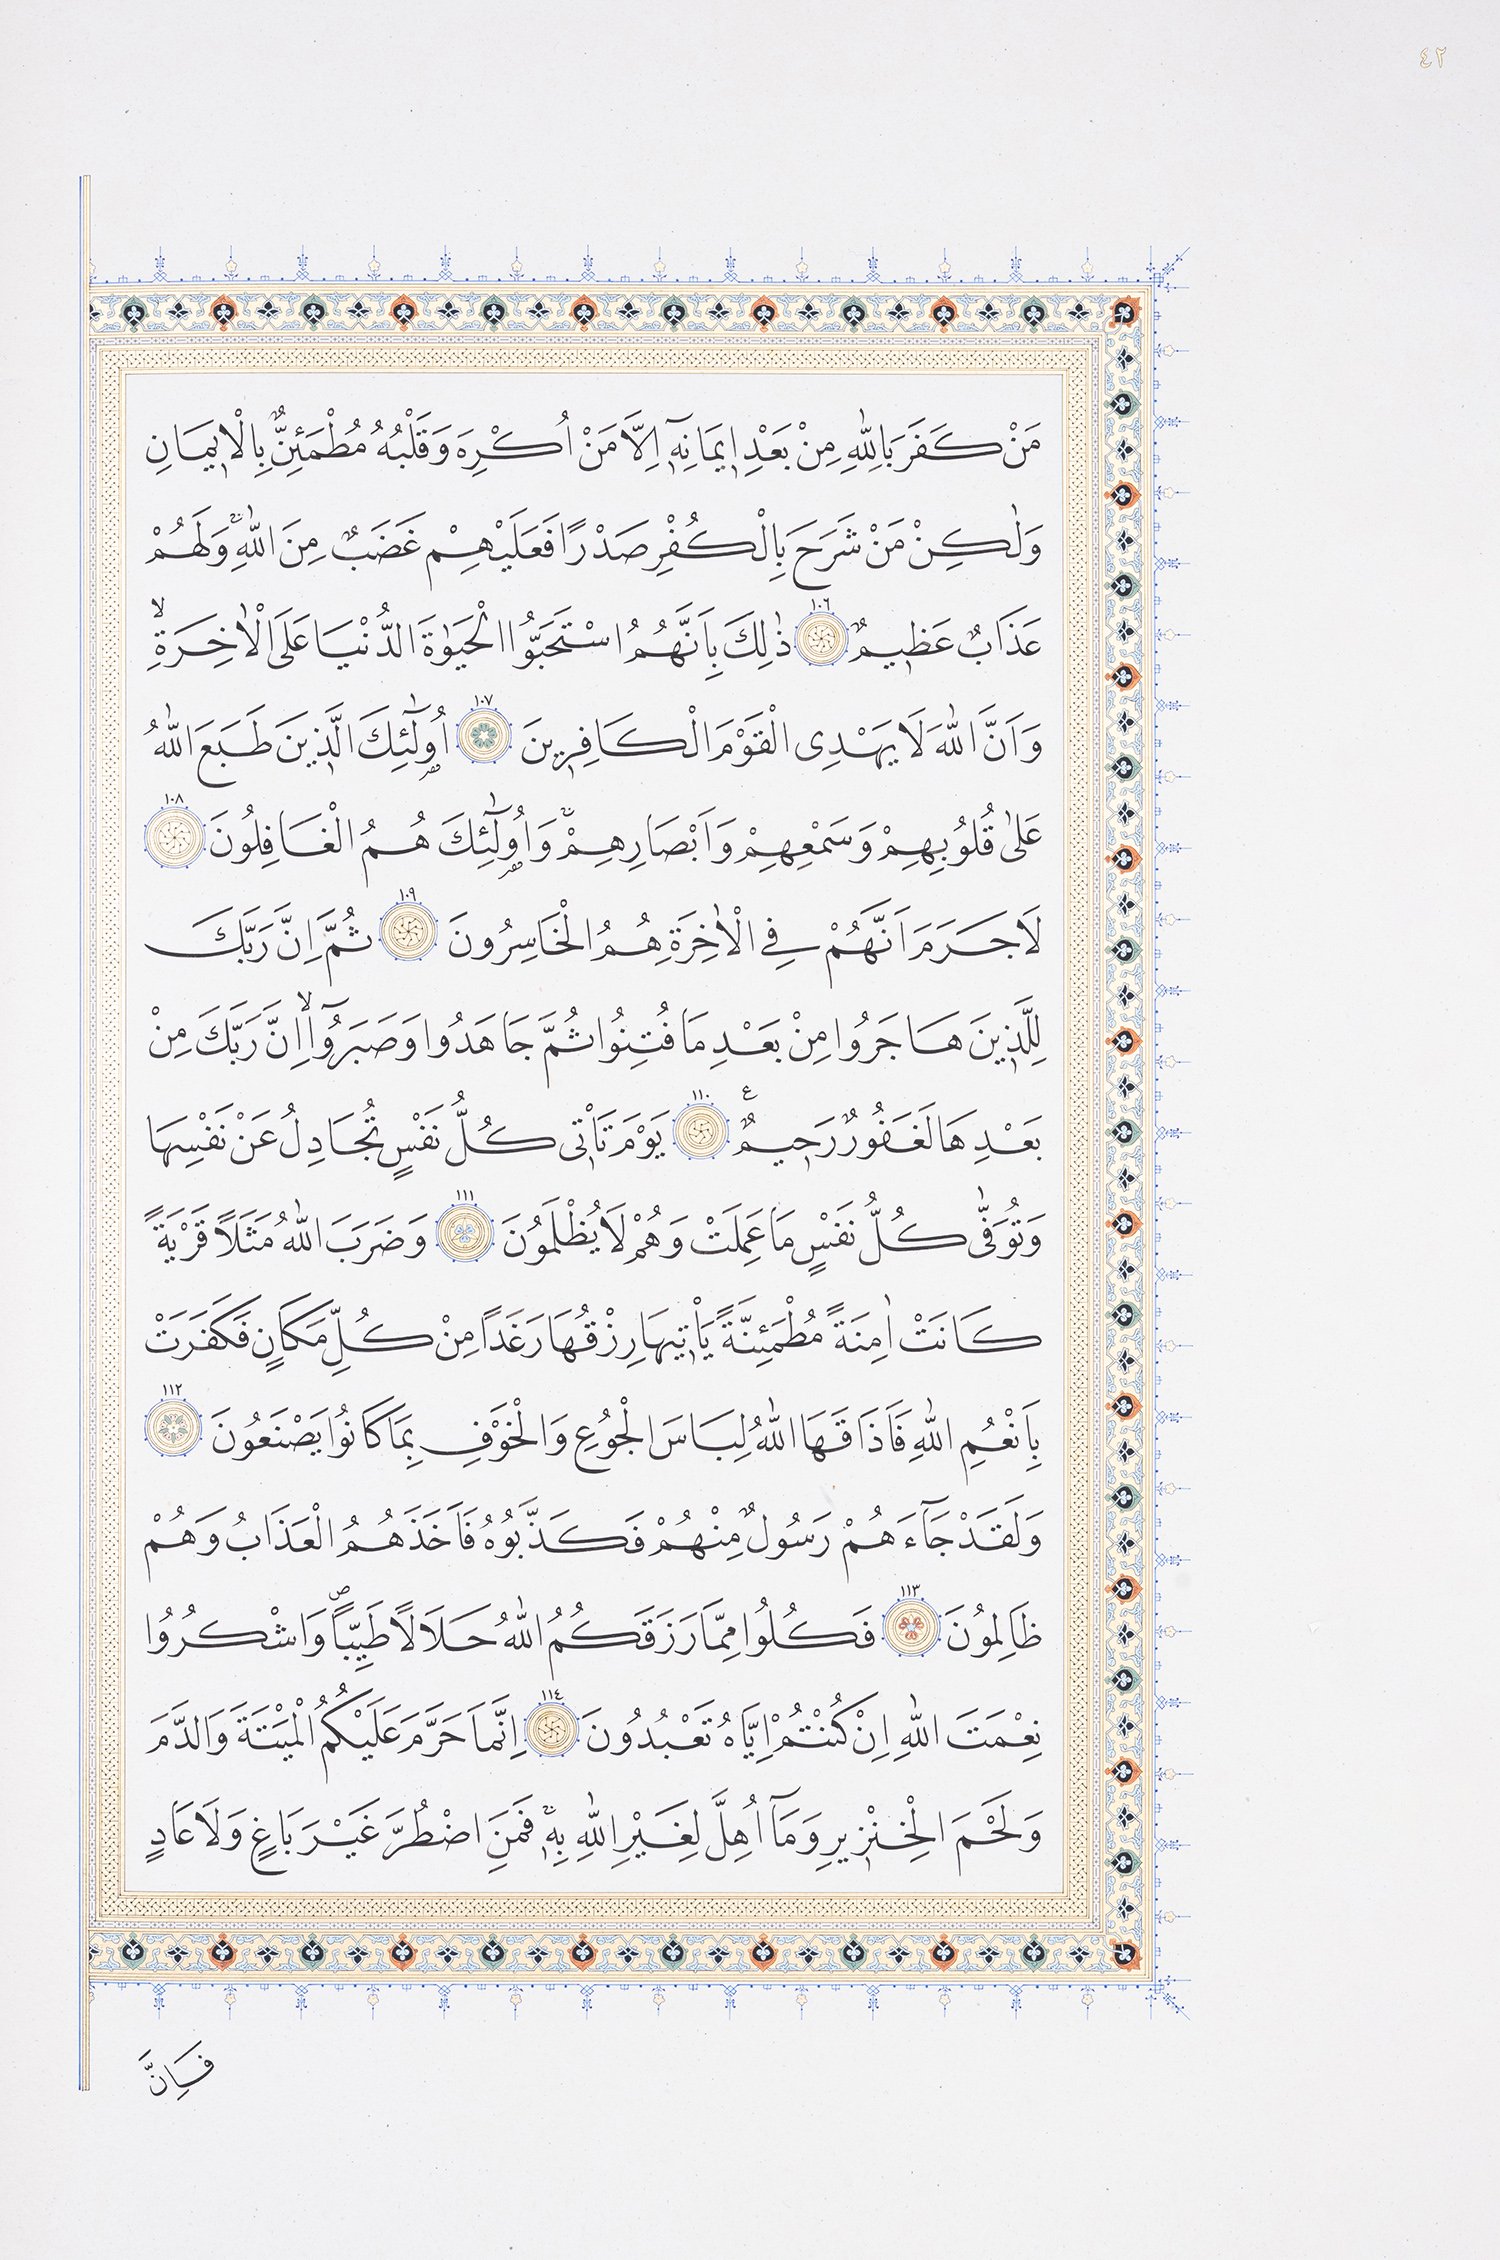 ٤٢
مَنْ كَفَرَ بِاللّٰهِ مِنْ بَعْدِ اٖيمَانِهٖٓ اِلَّا مَنْ اُكْرِهَ وَقَلْبُهُ مُطْمَئِنٌّ بِالْاٖيمَانِ
وَلٰكِنْ مَنْ شَرَحَ بِالْكُفْرِ صَدْرًا فَعَلَيْهِمْ غَضَبٌ مِنَ اللّٰهِۚ وَلَهُمْ
عَذَابٌ عَظٖيمٌ ١٠٦ ذٰلِكَ بِاَنَّهُمُ اسْتَحَبُّوا الْحَيٰوةَ الدُّنْيَا عَلَى الْاٰخِرَةِۙ
وَاَنَّ اللّٰهَ لَا يَهْدِى الْقَوْمَ الْكَافِرٖينَ ١٠٧ اُو۬لٰٓئِكَ الَّذٖينَ طَبَعَ اللّٰهُ
عَلٰى قُلُوبِهِمْ وَسَمْعِهِمْ وَاَبْصَارِهِمْۚ وَاُو۬لٰٓئِكَ هُمُ الْغَافِلُونَ ١٠٨
لَا جَرَمَ اَنَّهُمْ فِى الْاٰخِرَةِ هُمُ الْخَاسِرُونَ ١٠٩ ثُمَّ اِنَّ رَبَّكَ
لِلَّذٖينَ هَاجَرُوا مِنْ بَعْدِ مَا فُتِنُوا ثُمَّ جَاهَدُوا وَصَبَرُٓواۙ اِنَّ رَبَّكَ مِنْ
بَعْدِهَا لَغَفُورٌ رَحٖيمٌ ع ١١٠ يَوْمَ تَاْتٖى كُلُّ نَفْسٍ تُجَادِلُ عَنْ نَفْسِهَا
وَتُوَفّٰى كُلُّ نَفْسٍ مَا عَمِلَتْ وَهُمْ لَا يُظْلَمُونَ ١١١ وَضَرَبَ اللّٰهُ مَثَلًا قَرْيَةً
كَانَتْ اٰمِنَةً مُطْمَئِنَّةً يَاْتٖيهَا رِزْقُهَا رَغَدًا مِنْ كُلِّ مَكَانٍ فَكَفَرَتْ
بِاَنْعُمِ اللّٰهِ فَاَذَاقَهَا اللّٰهُ لِبَاسَ الْجُوعِ وَالْخَوْفِ بِمَا كَانُوا يَصْنَعُونَ ١١٢
وَلَقَدْ جَٓاءَهُمْ رَسُولٌ مِنْهُمْ فَكَذَّبُوهُ فَاَخَذَهُمُ الْعَذَابُ وَهُمْ
ظَالِمُونَ ١١٣ فَكُلُوا مِمَّا رَزَقَكُمُ اللّٰهُ حَلَالًا طَيِّبًاۖ وَاشْكُرُوا
نِعْمَتَ اللّٰهِ اِنْ كُنْتُمْ اِيَّاهُ تَعْبُدُونَ ١١٤ اِنَّمَا حَرَّمَ عَلَيْكُمُ الْمَيْتَةَ وَالدَّمَ
وَلَحْمَ الْخِنْزٖيرِ وَمَٓا اُهِلَّ لِغَيْرِ اللّٰهِ بِهٖۚ فَمَنِ اضْطُرَّ غَيْرَ بَاغٍ وَلَا عَادٍ
فَاِنَّ